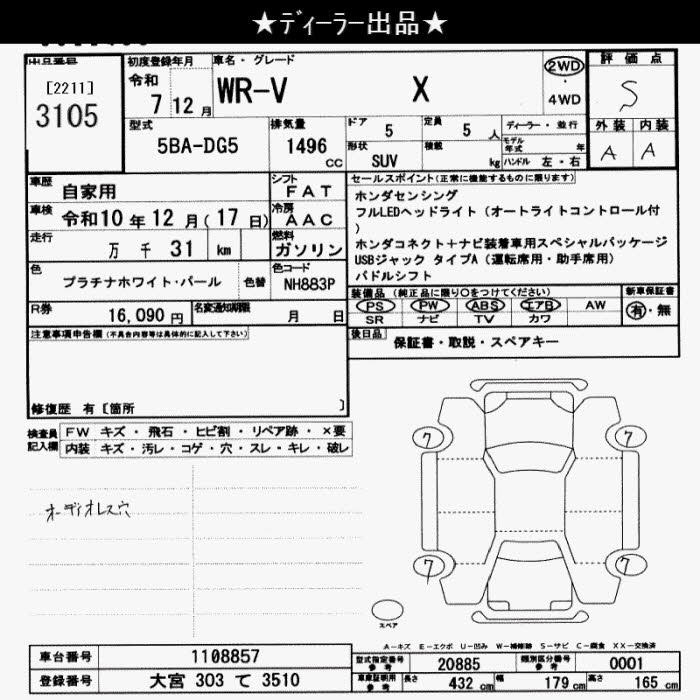 ★ディーラー出品★
初度登録年月
車名・グレード
評価点
[2211]
3105
令和
7 12 月
WR-V X
2WD
・
4WD
S
外装 内装
A A
型式
5BA-DG5
排気量
1496 CC
ドア 5
定員 5 人
ディーラー・並行
モデル年式 年
形状 SUV
積載 kg
ハンドル 左・右
車歴 自家用
シフト FAT
車検 令和10年12月(17日)
冷房 AAC
走行 万 千 31 km
燃料 ガソリン
色 プラチナホワイト・パール
色替
色コード NH883P
R券 16,090 円
名変通知期限 月 日
セールスポイント(正常に機能するものに限ります)
ホンダセンシング
フルLEDヘッドライト(オートライトコントロール付
)
ホンダコネクト+ナビ装着車用スペシャルパッケージ
USBジャック タイプA(運転席用・助手席用)
パドルシフト
装備品(純正品に限り○をつけてください)
新車保証書
PS PW ABS エアB AW
有・無
SR ナビ TV カワ
後日品 保証書・取説・スペアキー
注意事項申告欄(不具合内容等は具体的に記入して下さい)
修復歴 有〔箇所 〕
検査員記入欄
FW キズ・飛石・ヒビ割・リペア跡・×要
内装 キズ・汚レ・コゲ・穴・スレ・キレ・破レ
オーディオレス穴
7 7
7 7
スペア
A-キズ E-エクボ U-凹み W-補修跡 S-サビ C-腐食 XX-交換済
車台番号 1108857
登録番号 大宮 303 て 3510
型式指定番号参考 20885
類別区分番号参考 0001
車庫証明用参考 長さ 432 cm 幅 179 cm 高さ 165 cm